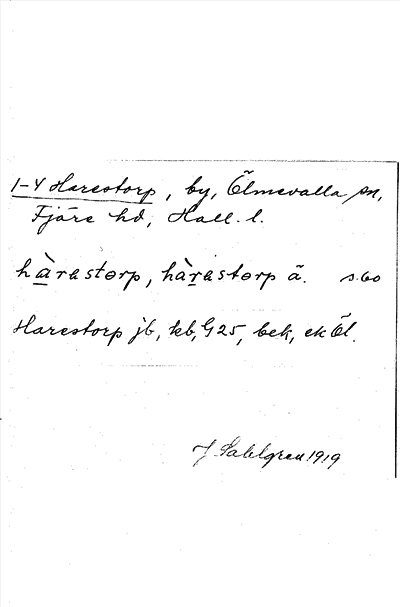 1-4 Harestorp, by, Ölmevalla sn,
Fjäre hd, Hall. l.
hàrastorp, hàrastorp ä. s. 60
Harestorp jb, kb, G 25, bek, ek Öl.
J. Sahlgren 1919